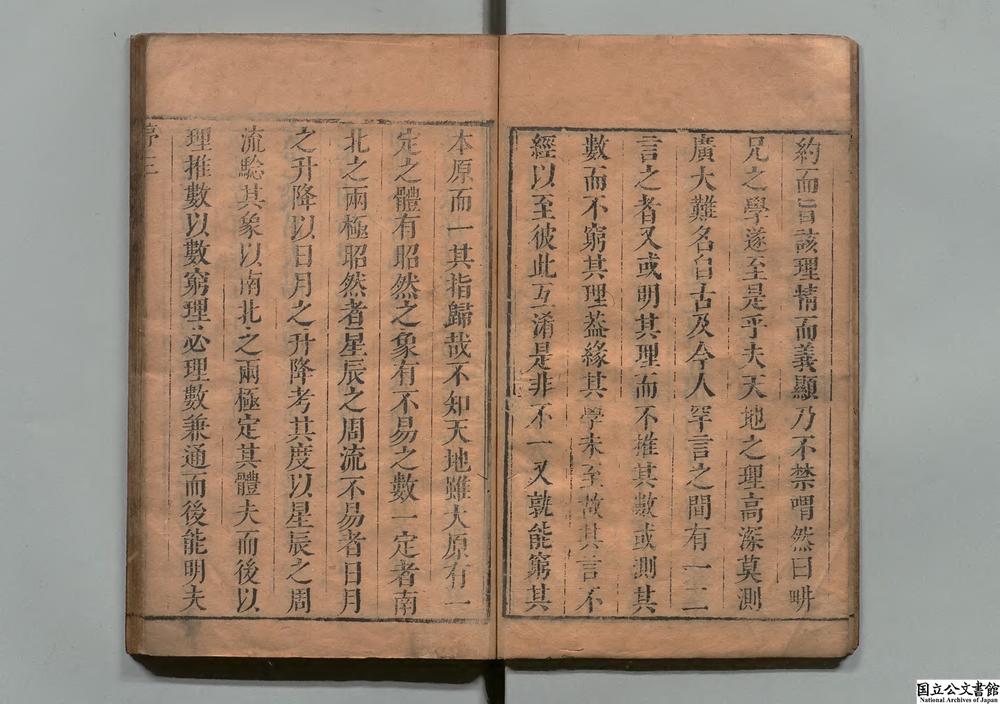 約而旨該理精而義顯乃不禁喟然曰畊
兄之學遂至是乎夫天地之理高深莫測
廣大難名自古及今人罕言之間有一二
言之者又或明其理而不推其數或測其
數而不窮其理葢緣其學未至故其言不
經以至彼此互淆是非不一又孰能窮其
本原而一其指歸哉不知天地雖大原有一
定之體有昭然之象有不易之數一定者南
北之兩極昭然者星辰之周流不易者日月
之升降以日月之升降考其度以星辰之周
流驗其象以南北之兩極定其體夫而後以
理推數以數窮理必理數兼通而後能明夫
序三
国立公文書館
National Archives of Japan